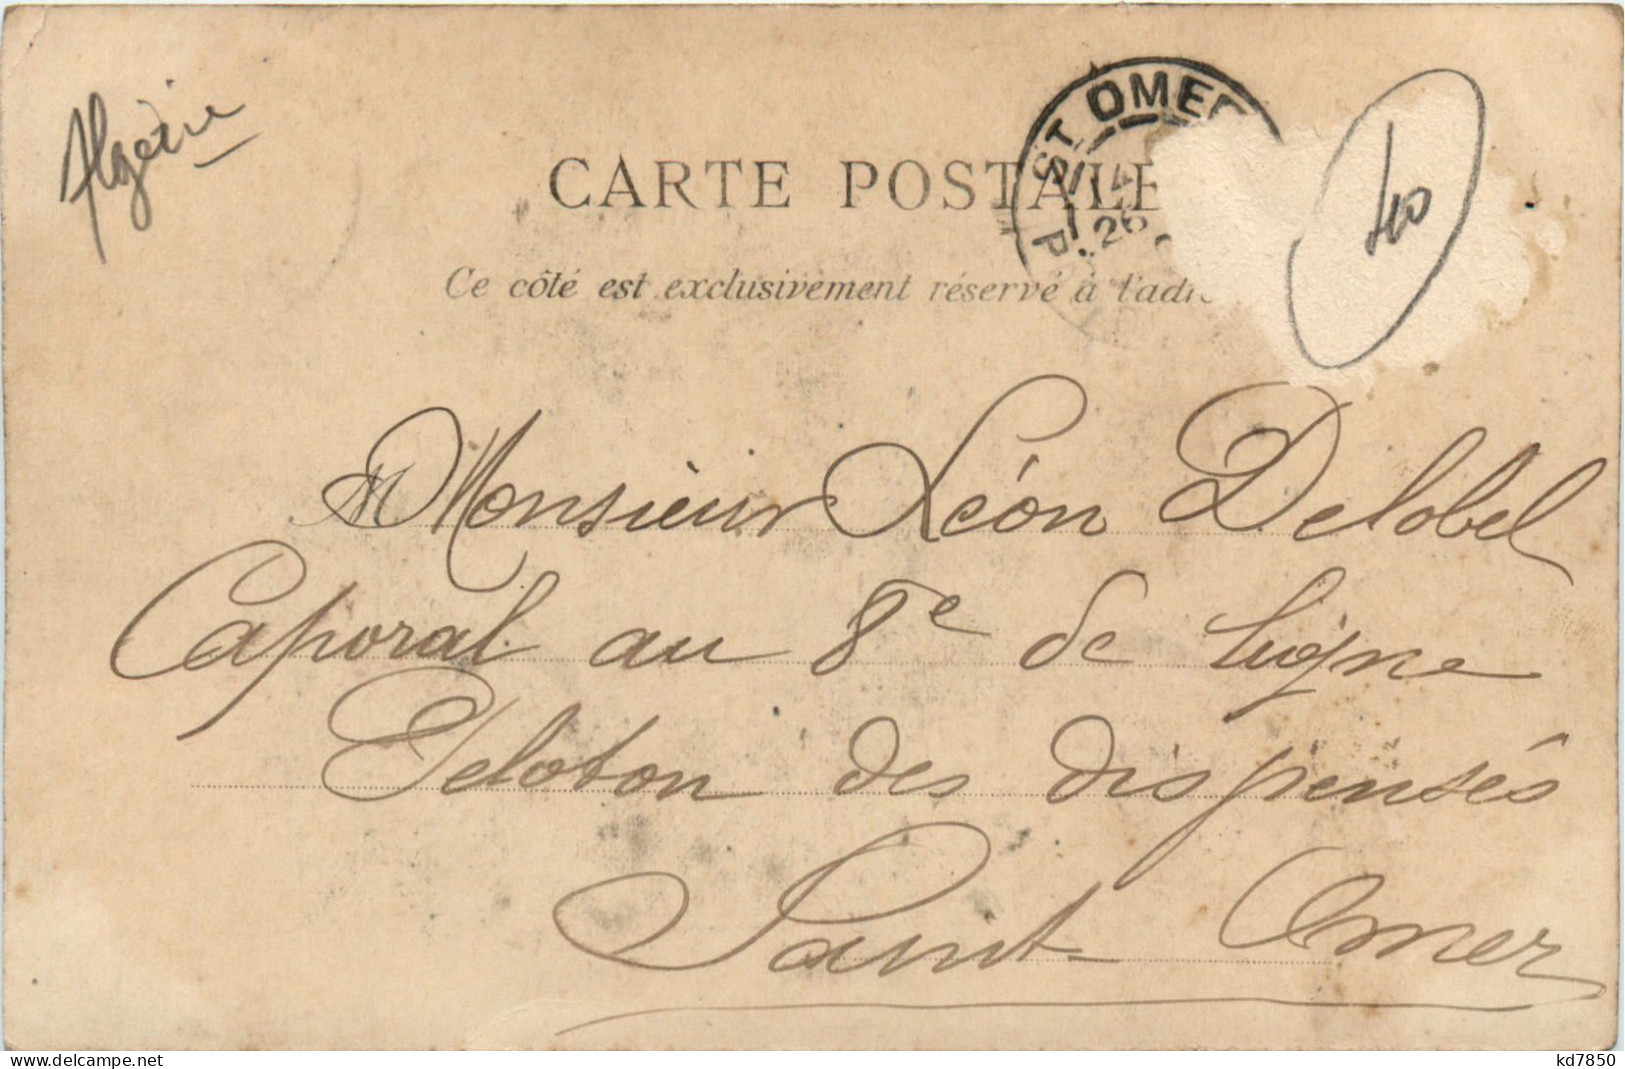 Algérie
ST OMER
14
26
P
CARTE POSTALE
40
Ce côté est exclusivement réservé à l'adr
Monsieur Léon Delobel
Caporal au 8e de ligne
Peloton des dispensés
Saint-Omer
delcampe.net
kd7850